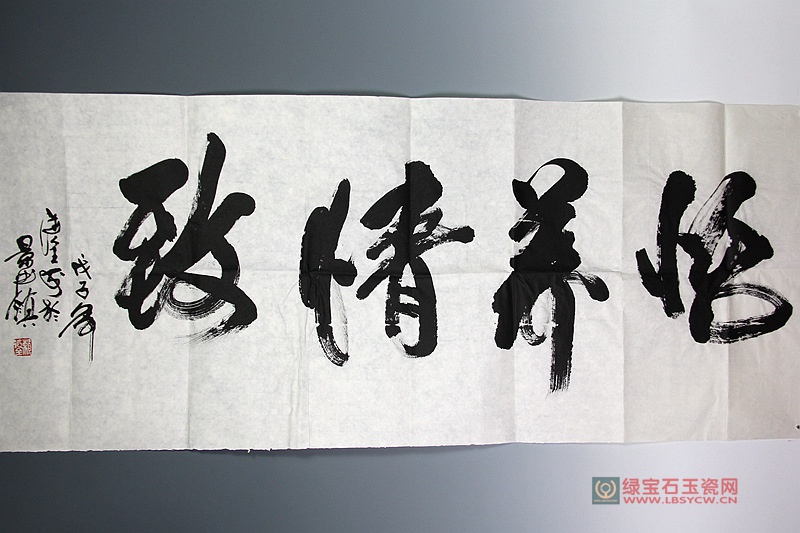 怡养情致
戊子年
书于
景德鎮
绿宝石玉瓷网
WWW.LBSYCW.CN